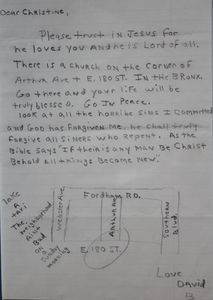 Dear Christine,
Please trust in Jesus for
he loves you and he is Lord of all.
There is a church on the corner of
Arthur Ave + E. 180 ST. IN the BRONX.
Go there and your life will be
truly blessed. Go In Peace.
look at all the horrible sins I committed
and God has Forgiven me. He shall truly
Forgive all siners who repent. As the
Bible says "If their is any May Be Christ
Behold All things Become New".
Take
taxi
The
neighborhood
Bad
on a
Sunday
Morning
Fordham RD.
Webster Ave
Arthur Ave
Southern
Blvd.
E. 180 ST.
Love
David
B